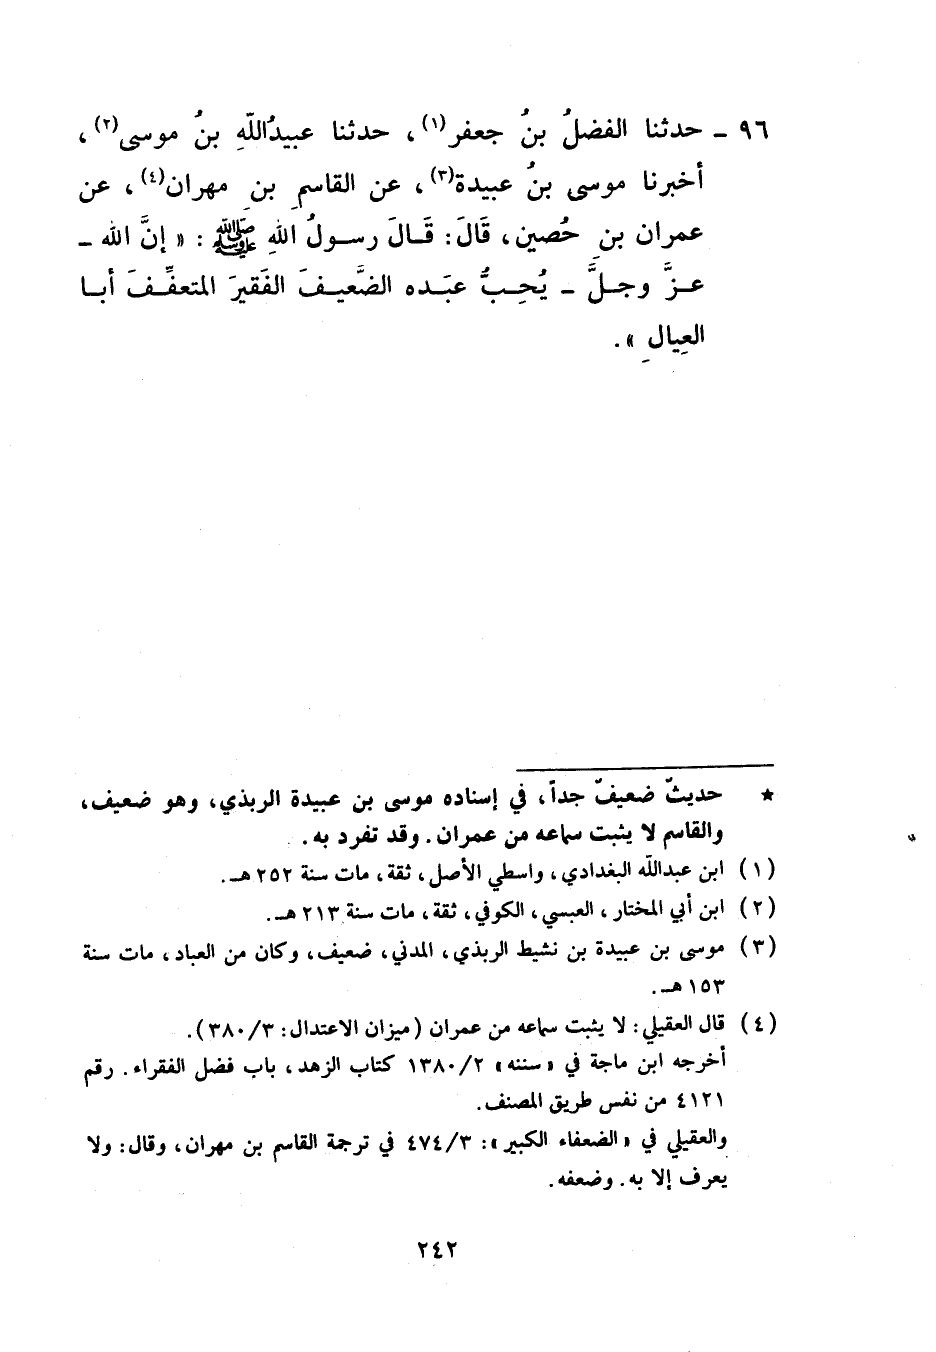 ٩٦ ـ حدثنا الفضلُ بنُ جعفر(١)، حدثنا عبيدُاللّهِ بنُ موسى(٢)،
أخبرنا موسى بنُ عبيدة(٣)، عن القاسمِ بنِ مهران(٤)، عن
عمران بنِ حُصين، قَالَ: قَـالَ رسـولُ اللهِ ﷺ: « إنَّ الله ـ
عـزَّ وجـلَّ ـ يُحِـبُّ عبَـده الضَّعيـفَ الفَقيرَ المتعفِّـفَ أبـا
العِيالِ ».
★ حديثٌ ضعيفٌ جداً، في إسناده موسى بن عبيدة الربذي، وهو ضعيف،
والقاسم لا يثبت سماعه من عمران. وقد تفرد به.
(١) ابن عبدالله البغدادي، واسطي الأصل، ثقة، مات سنة ٢٥٢ هـ.
(٢) ابن أبي المختار، العبسي، الكوفي، ثقة، مات سنة ٢١٣ هـ.
(٣) موسى بن عبيدة بن نشيط الربذي، المدني، ضعيف، وكان من العباد، مات سنة
١٥٣ هـ.
(٤) قال العقيلي: لا يثبت سماعه من عمران (ميزان الاعتدال: ٣/ ٣٨٠).
أخرجه ابن ماجة في «سننه» ٢/ ١٣٨٠ كتاب الزهد، باب فضل الفقراء. رقم
٤١٢١ من نفس طريق المصنف.
والعقيلي في «الضعفاء الكبير»: ٣/ ٤٧٤ في ترجمة القاسم بن مهران، وقال: ولا
يعرف إلا به. وضعفه.
٢٤٢